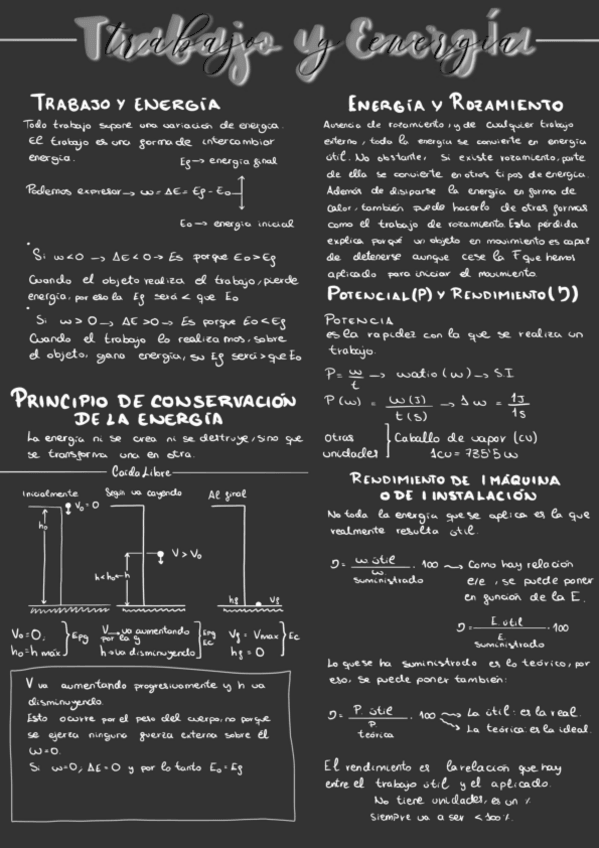 Trabajo y Energía
trabajo y energía
TRABAJO Y ENERGÍA
Todo trabajo supone una variación de energía.
El trabajo es una forma de intercambiar
energía.
Ef → energía final
Podemos expresar → W = ΔE = Ef - Eo
Eo → energía inicial
· Si w<0 → ΔE<0 → Es porque Eo>Ef
Cuando el objeto realiza el trabajo, pierde
energía, por eso la Ef será < que Eo
· Si w>0 → ΔE>0 → Es porque Eo<Ef
Cuando el trabajo lo realizamos, sobre
el objeto, gana energía, su Ef será > que Eo
PRINCIPIO DE CONSERVACIÓN
DE LA ENERGÍA
La energía ni se crea ni se destruye, sino que
se transforma una en otra.
Caída Libre
Inicialmente
Según va cayendo
Al final
Vo = 0
ho
V > Vo
h<ho ← h
hf
Vf
Vo = 0,
ho = h máx } Epg
V → va aumentando
por la g
h → va disminuyendo } Epg
Ec
Vf = Vmax
hf = 0 } Ec
V va aumentando progresivamente y h va
disminuyendo.
Esto ocurre por el peso del cuerpo, no porque
se ejerza ninguna fuerza externa sobre él
W=0.
Si w=0, ΔE=0 y por lo tanto Eo=Ef
ENERGÍA Y ROZAMIENTO
Ausencia de rozamiento, y de cualquier trabajo
externo, toda la energía se convierte en energía
útil. No obstante, si existe rozamiento, parte
de ella se convierte en otros tipos de energía.
Además de disiparse la energía en forma de
calor, también puede hacerlo de otras formas
como el trabajo de rozamiento. Esta pérdida
explica porqué un objeto en movimiento es capaz
de detenerse aunque cese la F que hemos
aplicado para iniciar el movimiento.
POTENCIAL (P) Y RENDIMIENTO (η)
POTENCIA
es la rapidez con la que se realiza un
trabajo.
P = w/t → watio (w) → S.I
P (w) = w (J) / t (s) → 1 w = 1J / 1s
Otras
unidades ] Caballo de vapor (cv)
1cv = 735'5 w
RENDIMIENTO DE 1 MÁQUINA
O DE 1 INSTALACIÓN
No toda la energía que se aplica es la que
realmente resulta útil.
η = w útil / w suministrado · 100 → Como hay relación
e/e, se puede poner
en función de la E.
η = E. útil / E. suministrado · 100
Lo que se ha suministrado es lo teórico, por
eso, se puede poner también:
η = P útil / P teórica · 100 → La útil: es la real.
→ La teórica es la ideal.
El rendimiento es la relación que hay
entre el trabajo útil y el aplicado.
No tiene unidades, es un %
Siempre va a ser <100%.